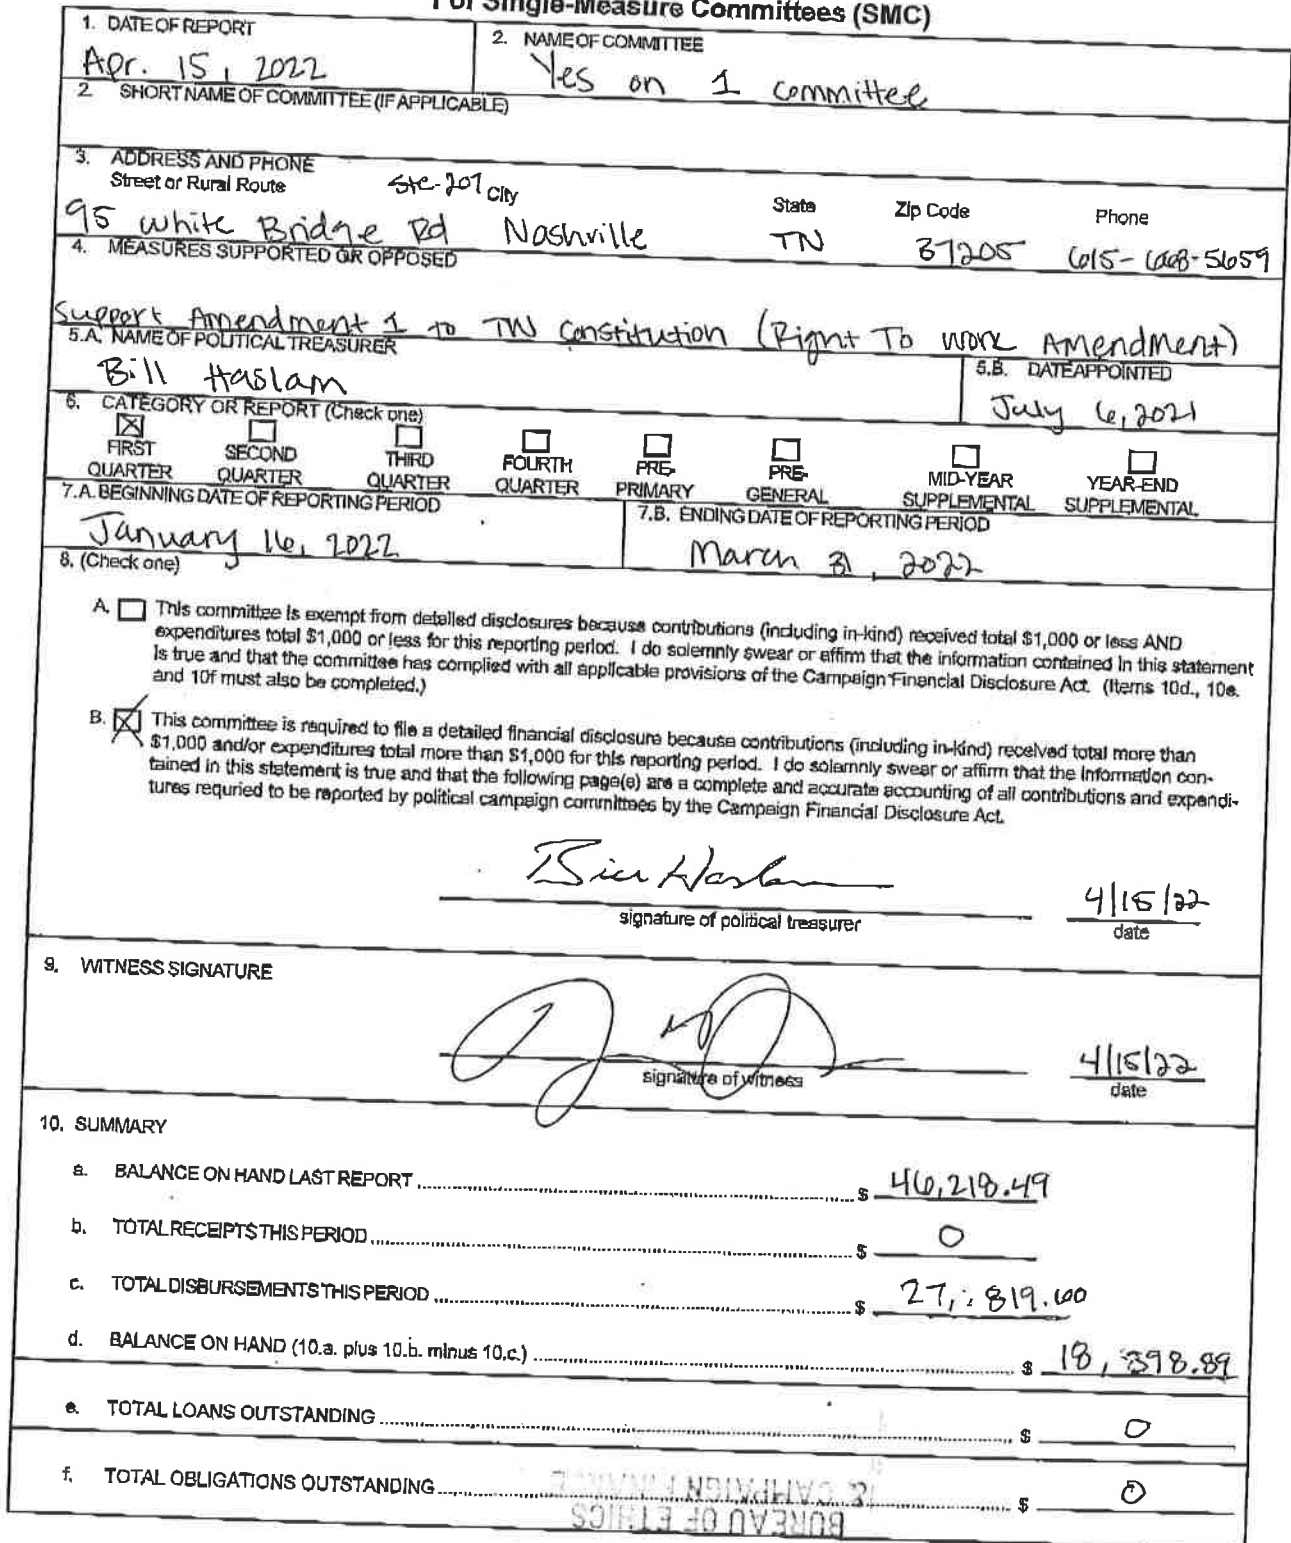 For Single-Measure Committees (SMC)
1. DATE OF REPORT
Apr. 15, 2022
2. NAME OF COMMITTEE
Yes on 1 committee
2. SHORT NAME OF COMMITTEE (IF APPLICABLE)
3. ADDRESS AND PHONE
Street or Rural Route Ste-207 City State Zip Code Phone
95 White Bridge Rd Nashville TN 37205 615-668-5659
4. MEASURES SUPPORTED OR OPPOSED
Support Amendment 1 to TN Constitution (Right To Work Amendment)
5.A. NAME OF POLITICAL TREASURER
Bill Haslam
5.B. DATE APPOINTED
July 6, 2021
6. CATEGORY OR REPORT (Check one)
FIRST QUARTER
SECOND QUARTER
THIRD QUARTER
FOURTH QUARTER
PRE-PRIMARY
PRE-GENERAL
MID-YEAR SUPPLEMENTAL
YEAR-END SUPPLEMENTAL
7.A. BEGINNING DATE OF REPORTING PERIOD
January 16, 2022
7.B. ENDING DATE OF REPORTING PERIOD
March 31, 2022
8. (Check one)
A. This committee is exempt from detailed disclosures because contributions (including in-kind) received total $1,000 or less AND
expenditures total $1,000 or less for this reporting period. I do solemnly swear or affirm that the information contained in this statement
is true and that the committee has complied with all applicable provisions of the Campaign Financial Disclosure Act. (Items 10d., 10e.
and 10f must also be completed.)
B. This committee is required to file a detailed financial disclosure because contributions (including in-kind) received total more than
$1,000 and/or expenditures total more than $1,000 for this reporting period. I do solemnly swear or affirm that the information con-
tained in this statement is true and that the following page(s) are a complete and accurate accounting of all contributions and expendi-
tures requried to be reported by political campaign committees by the Campaign Financial Disclosure Act.
Bill Haslam
4/15/22
signature of political treasurer
date
9. WITNESS SIGNATURE
4/15/22
signature of witness
date
10. SUMMARY
a. BALANCE ON HAND LAST REPORT $ 46,218.49
b. TOTAL RECEIPTS THIS PERIOD $ 0
c. TOTAL DISBURSEMENTS THIS PERIOD $ 27,819.60
d. BALANCE ON HAND (10.a. plus 10.b. minus 10.c.) $ 18,398.89
e. TOTAL LOANS OUTSTANDING $ 0
f. TOTAL OBLIGATIONS OUTSTANDING $ 0
& CAMPAIGN FINANCE
BUREAU OF ETHICS